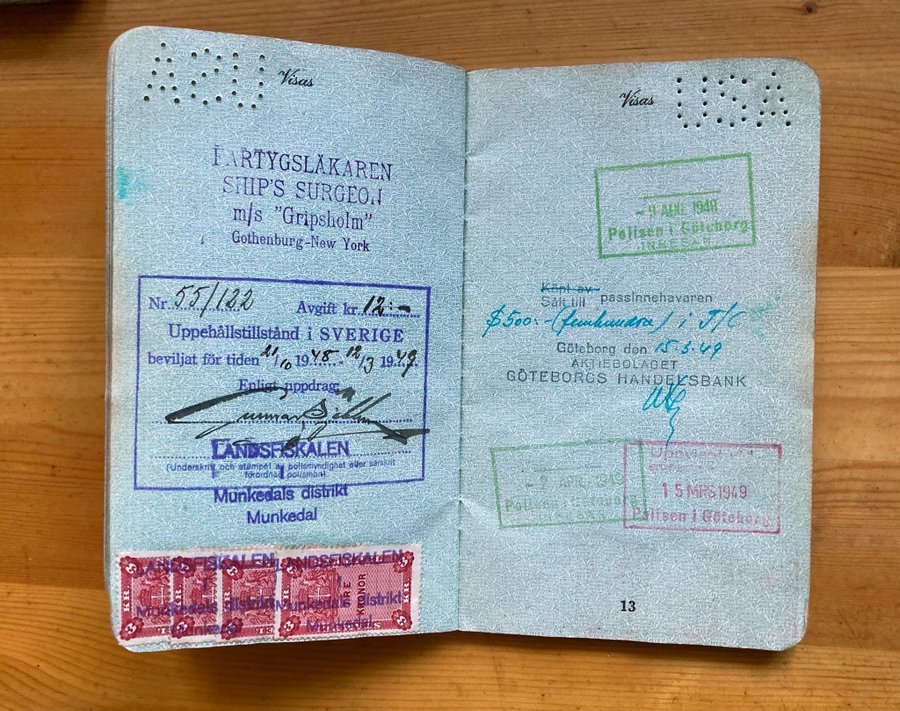 USA
Visas
FARTYGSLÄKAREN
SHIP'S SURGEON
m/s "Gripsholm"
Gothenburg-New York
Nr. 55/122 Avgift kr. 12:-
Uppehållstillstånd i SVERIGE
beviljat för tiden 21/10 1948 - 12/3 1949
Enligt uppdrag:
LANDSFISKALEN
(Underskrift och stämpel av polismyndighet eller särskilt
förordnad polisman)
i
Munkedals distrikt
Munkedal
LANDSFISKALEN LANDSFISKALEN
i i
Munkedals distrikt Munkedals distrikt
Munkedal Munkedal
KR. KR. KR. KR.
3 3 3 3
TRE
KRONOR
Visas
USA
- 9 AUG. 1948
Polisen i Göteborg
INRESAN
Köpt av
Sålt till passinnehavaren
$500:- (femhundra) i T/C
Göteborg den 15.3.49
AKTIEBOLAGET
GÖTEBORGS HANDELSBANK
APR. 1949
Polisen i Göteborg
15 MRS 1949
Polisen i Göteborg
13